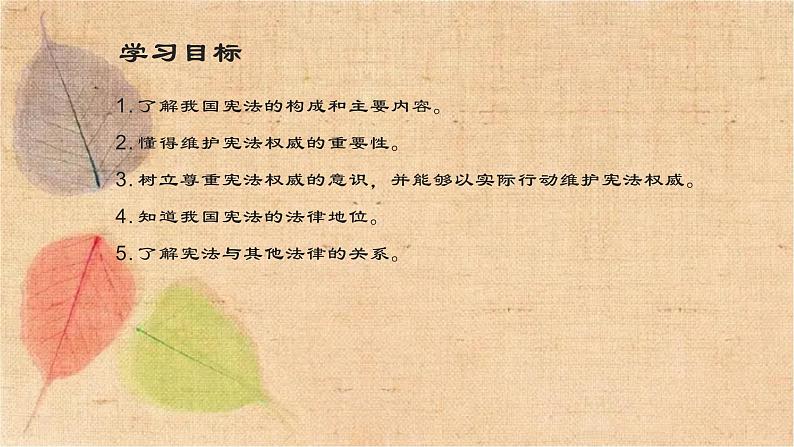 学习目标
1.了解我国宪法的构成和主要内容。
2.懂得维护宪法权威的重要性。
3.树立尊重宪法权威的意识，并能够以实际行动维护宪法权威。
4.知道我国宪法的法律地位。
5.了解宪法与其他法律的关系。